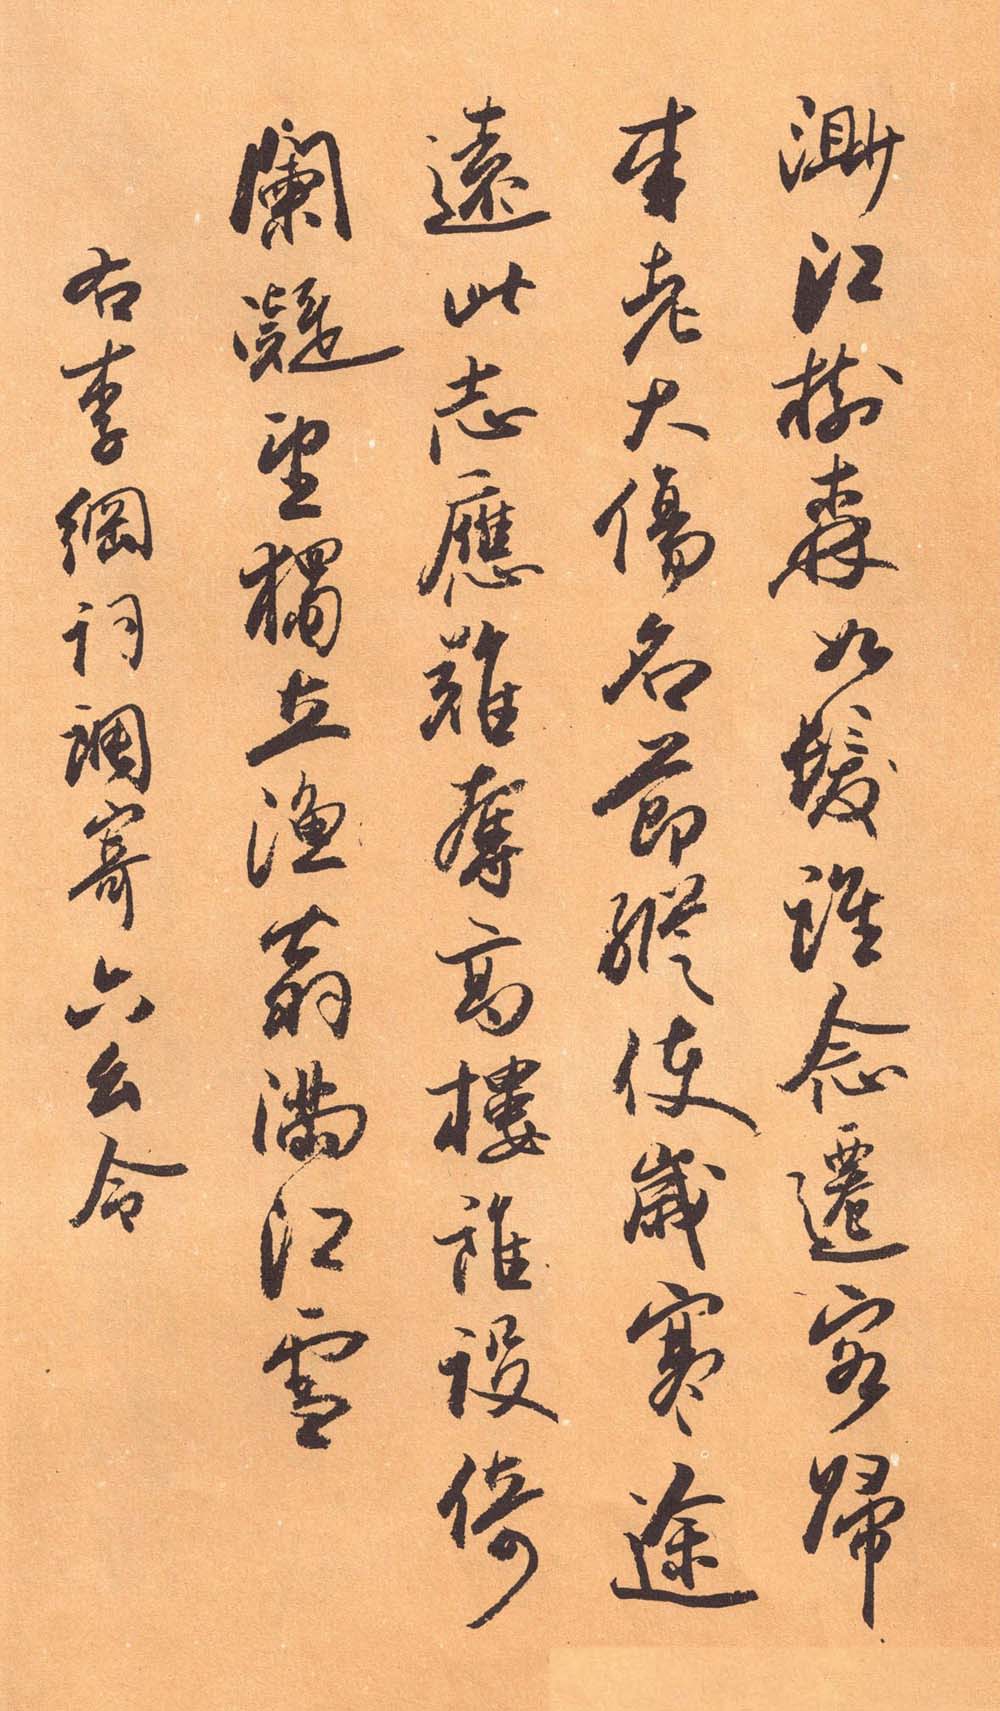 渺江樹森如髮誰念遷客歸
來老大傷名節縱使歲寒途
遠此志應難奪高樓誰設倚
闌凝望獨立漁翁滿江雪
右李綱詞調寄六么令